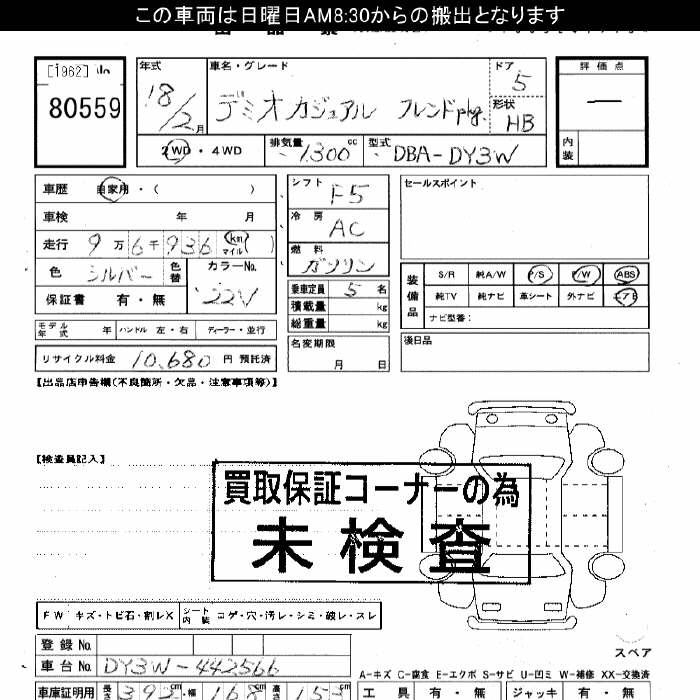 この車両は日曜日AM8:30からの搬出となります
[1962]
80559
年式
18/2月
車名・グレード
デミオ カジュアル フレンドpkg.
ドア
5
形状
HB
評価点
—
内装
2WD・4WD
排気量
1300cc
型式
DBA-DY3W
車歴 自家用・( )
車検 年 月
走行 9万6千936 km マイル ( )
色 シルバー 色替
カラーNo.
22V
保証書 有・無
モデル年式 年
ハンドル 左・右
ディーラー・並行
リサイクル料金 10,680 円 預託済
シフト
F5
冷房
AC
燃料
ガソリン
乗車定員 5 名
積載量 kg
総重量 kg
名変期限
月 日
セールスポイント
装備品
S/R 純A/W P/S P/W ABS
純TV 純ナビ 革シート 外ナビ エアB
ナビ型番:
後日品
【出品店申告欄(不良箇所・欠品・注意事項等)】
【検査員記入】
買取保証コーナーの為
未検査
FW キズ・トビ石・割レX
シート内装 コゲ・穴・汚レ・シミ・破レ・スレ
スペア
登録No.
車台No. DY3W-442566
A-キズ C-腐食 E-エクボ S-サビ U-凹ミ W-補修 XX-交換済
車庫証明用 長さ 392cm 幅 168cm 高さ
工具 有・無
ジャッキ 有・無